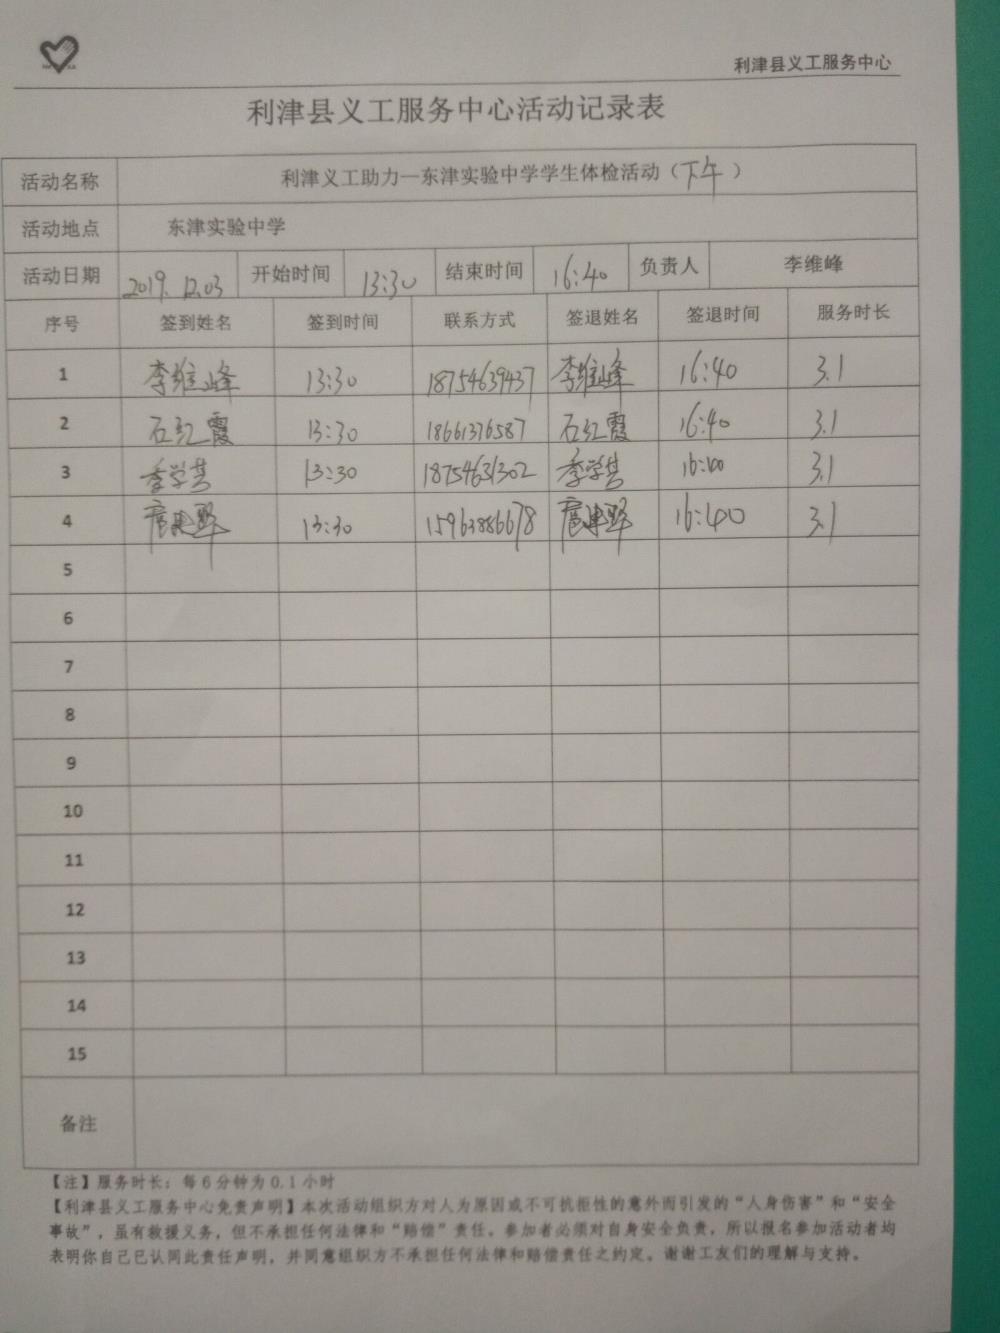 利津县义工服务中心
利津县义工服务中心活动记录表
活动名称 利津义工助力—东津实验中学学生体检活动（下午）
活动地点 东津实验中学
活动日期 2019.12.03 开始时间 13:30 结束时间 16:40 负责人 李维峰
序号 签到姓名 签到时间 联系方式 签退姓名 签退时间 服务时长
1 李维峰 13:30 18754639437 李维峰 16:40 3.1
2 石红霞 13:30 18661376587 石红霞 16:40 3.1
3 季学芸 13:30 18754631302 季学芸 16:40 3.1
4 13:30 15963886678 16:40 3.1
5
6
7
8
9
10
11
12
13
14
15
备注
【注】服务时长：每6分钟为0.1小时
【利津县义工服务中心免责声明】本次活动组织方对人为原因或不可抗拒性的意外而引发的“人身伤害”和“安全
事故”，虽有救援义务，但不承担任何法律和“赔偿”责任。参加者必须对自身安全负责，所以报名参加活动者均
表明你自己已认同此责任声明，并同意组织方不承担任何法律和赔偿责任之约定。谢谢工友们的理解与支持。